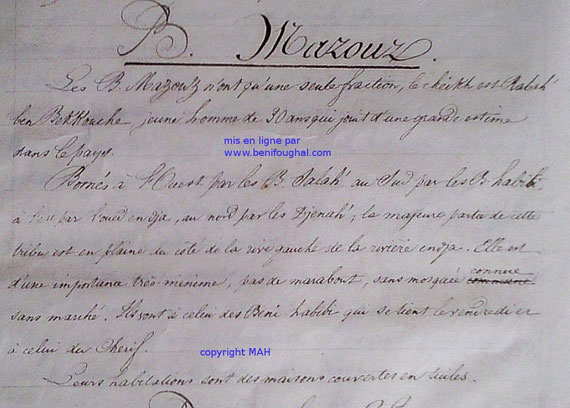 B. Mazouz.
Les B. Mazouz n'ont qu'une seule fraction, le cheikh est Rabah
ben Bekkouche jeune homme de 30 ans qui jouit d'une grande estime
mis en ligne par
dans le pays.
www.benifoughal.com
Bornés à l'Ouest par les B. Salah au Sud par les B. habibi
à l'est par l'oued endja, au nord par les Djenah; la majeure partie de cette
tribu est en plaine du côté de la rive gauche de la rivière endja. Elle est
d'une importance très minime, pas de marabout, sans mosquée connue
sans marché. Ils vont à celui des Beni habibi qui se tient le vendredi et
à celui du Cherif.
copyright MAH
Leurs habitations sont des maisons couvertes en tuiles.